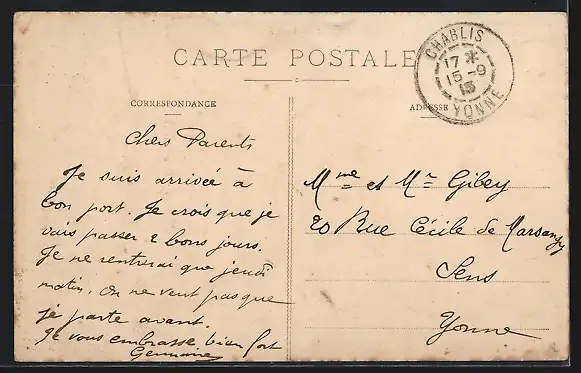 CARTE POSTALE
CHABLIS
17 *
15 - 9
13
YONNE
CORRESPONDANCE
Chers Parents
Je suis arrivée à
bon port. Je crois que je
vais passer 2 bons jours.
Je ne rentrerai que jeudi
matin. On ne veut pas que
je parte avant.
Je vous embrasse bien fort
Germaine
ADRESSE
Mme et Mr Gibey
20 Rue Cécile de Marsangy
Sens
Yonne